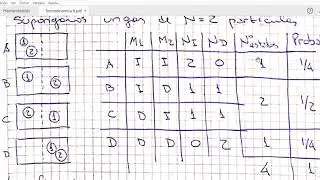 Supongamos urgas de N=2 partículas
M1 M2 NI ND Nºestados Proba
A ① ② A I I 2 0 1 1/4
B ① ② B I D 1 1 2 1/2
C ② ① C D I 1 1
D ① ② D D D 0 2 1 1/4
4 1